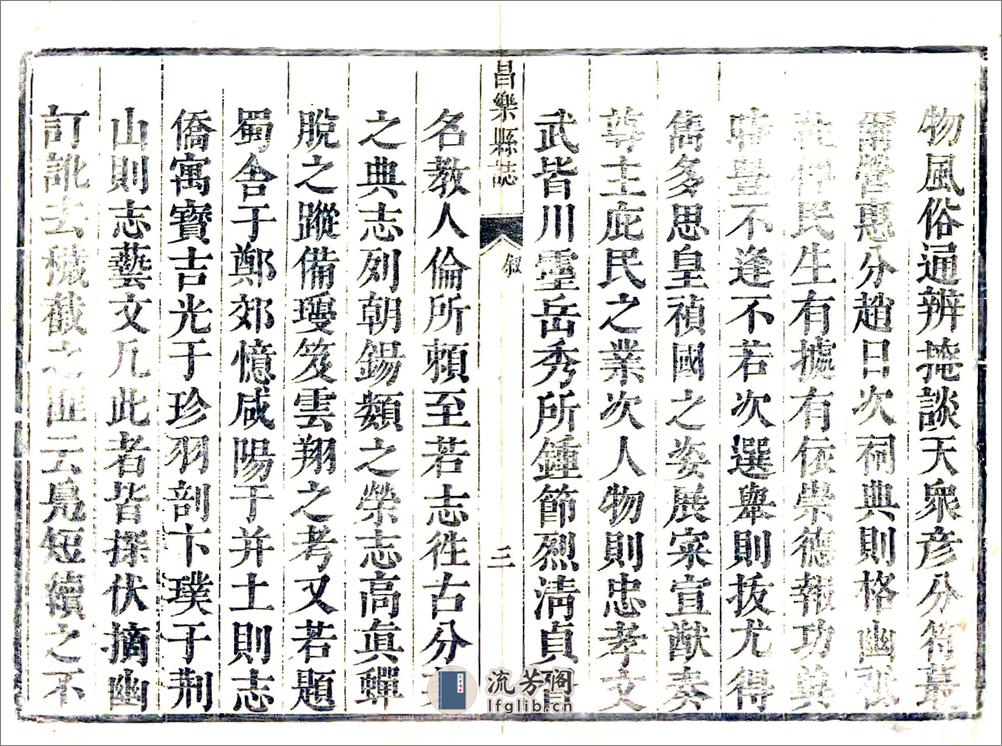 物風俗通辨掩談天衆彦分符最
爾營惠分趙日次祠典則格幽祇
社俾民生有據有依崇德報功
疇豐不逢不若次選舉則拔尤得
雋多思皇禎國之姿展寀宣猷奏
尊主庇民之業次人物則忠孝文
武皆川靈岳秀所鍾節烈清貞
昌樂縣誌
叙
三
名教人倫所頼至若志徃古分
之典志列朝錫類之榮志高眞蟬
脫之蹤備璦笈雲翔之考又若題
蜀舎于鄭郊憶咸陽于并土則志
僑寓寶吉光于珍羽剖卞璞于荆
山則志藝文凢此者皆探伏摘幽
訂訛去穢截之匪云鳬短續之不
流芳阁
lfglib.cn